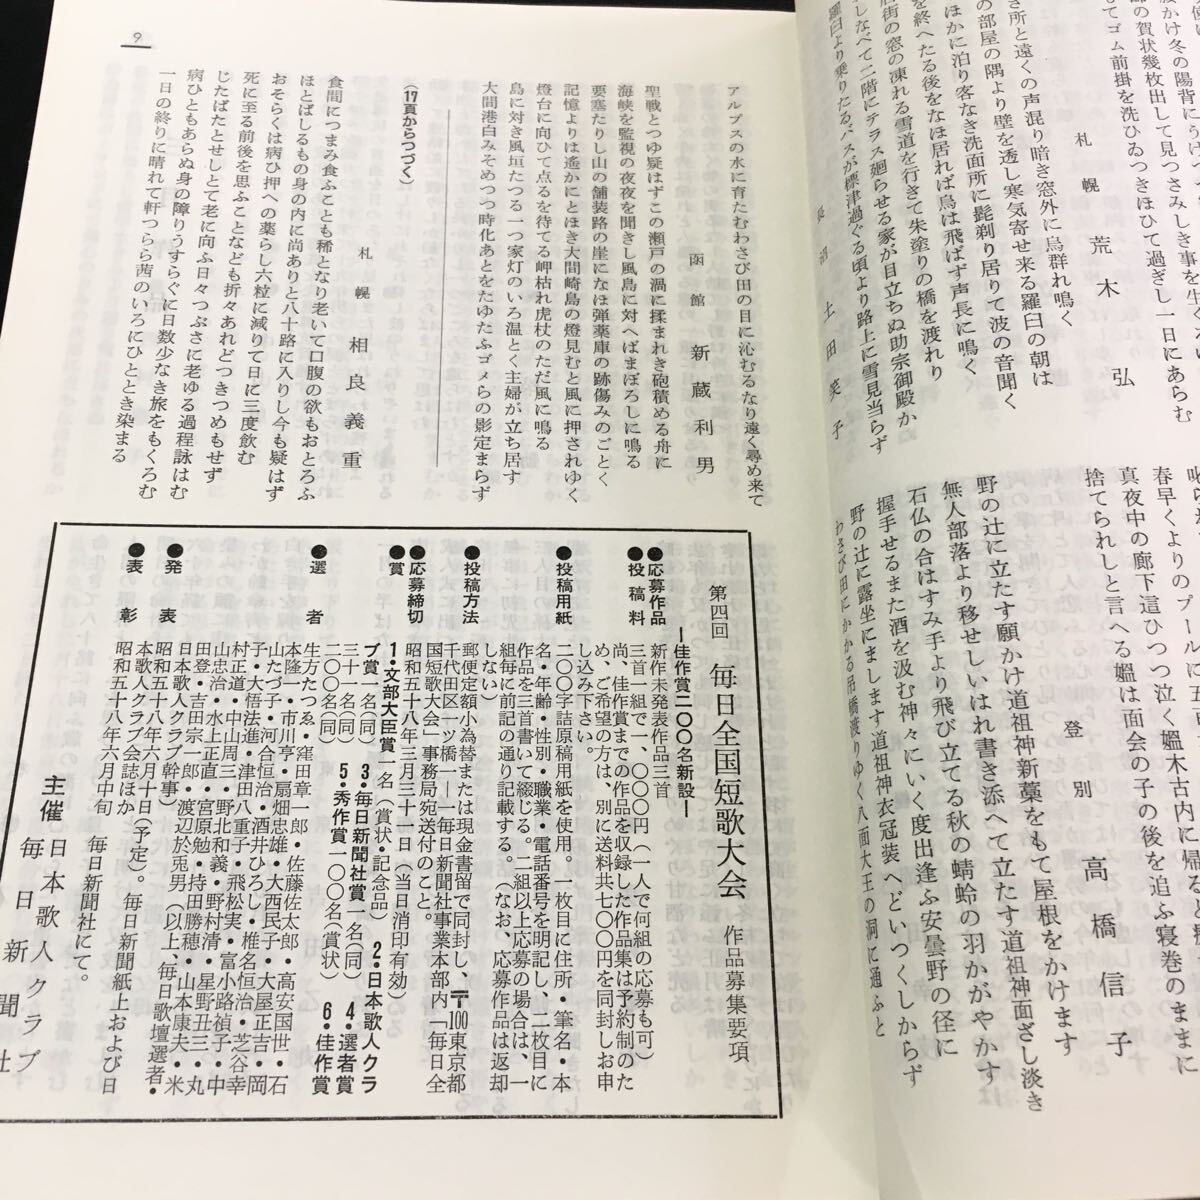 札幌　荒木弘
き所と遠くの声混り暗き窓外に烏群れ鳴く
の部屋の隅より壁を透し寒気寄せ来る羅臼の朝は
ほかに泊り客なき洗面所に髭剃り居りて波の音聞く
を終へたる後をなほ居れば烏は飛ばず声長に鳴く
街の窓の凍れる雪道を行きて朱塗りの橋を渡れり
しなべて二階にテラス廻らせる家が目立ちぬ助宗御殿か
羅臼より乗りたるバスが標津過ぐる頃より路上に雪見当らず
土田笑子
アルプスの水に育たむわさび田の目に沁むるなり遠く尋め来て
函館　新蔵利男
聖戦とつゆ疑はずこの瀬戸の渦に揉まれき砲積める舟に
海峡を監視の夜夜を聞きし風島に対へばまぼろしに鳴る
要塞たりし山の舗装路の崖になほ弾薬庫の跡傷みのごとく
記憶よりは遙かにとほき大間崎島の燈見むと風に押されゆく
燈台に向ひて点るを待てる岬枯れ虎杖のただ風に鳴る
島に対き風垣たつる一つ家灯のいろ温とく主婦が立ち居す
大間港白みそめつつ時化あとをたゆたふゴメらの影定まらず
（17頁からつづく）
札幌　相良義重
食間につまみ食ふことも稀となり老いて口腹の欲もおとろふ
ほとばしるもの身の内に尚ありと八十路に入りし今も疑はず
おそらくは病ひ押への薬らし六粒に減りて日に三度飲む
死に至る前後を思ふことなども折々あれどつきつめもせず
じたばたとせしとて老に向ふ日々つぶさに老ゆる過程詠はむ
病ひともあらぬ身の障りうすらぐに日数少なき旅をもくろむ
一日の終りに晴れて軒つらら茜のいろにひととき染まる
9
春早くよりのプールに五百
真夜中の廊下這ひつつ泣く媼木古内に帰ると
捨てられしと言へる媼は面会の子の後を追ふ寝巻のままに
登別　高橋信子
野の辻に立たす願かけ道祖神新藁をもて屋根をかけます
無人部落より移せしいはれ書き添へて立たす道祖神面ざし淡き
石仏の合はすみ手より飛び立てる秋の蜻蛉の羽かがやかす
握手せるまた酒を汲む神々にいく度出逢ふ安曇野の径に
野の辻に露坐にまします道祖神衣冠装へどいつくしからず
わさび田にかかる吊橋渡りゆく八面大王の洞に通ふと
第四回　毎日全国短歌大会　作品募集要項
―佳作賞二〇〇名新設―
●応募作品　新作未発表作品三首
●投稿料　三首一組で一、〇〇〇円（一人で何組の応募も可）
尚、佳作賞までの作品を収録した作品集は予約制のた
め、ご希望の方は、別に送料共七〇〇円を同封しお申
し込み下さい。
●投稿用紙　二〇〇字詰原稿用紙を使用。一枚目に住所・筆名・本
名・年齢・性別・職業・電話番号を明記し、二枚目に
作品を三首書いて綴じる。二組以上応募の場合は、一
組毎に前記の通り記載する。（なお、応募作品は返却
しない）
●投稿方法　郵便定額小為替または現金書留で同封し、〒100東京都
千代田区一ツ橋一―一毎日新聞社事業本部内「毎日全
国短歌大会」事務局宛送付のこと。
●応募締切　昭和五十八年三月三十一日（当日消印有効）
●賞　1・文部大臣賞一名（賞状・記念品）　2・日本歌人クラ
ブ賞一名（同）　3・毎日新聞社賞一名（同）　4・選者賞
三十一名（同）　5・秀作賞一〇〇名（賞状）　6・佳作賞
二〇〇名（同）
●選者　生方たつゑ・窪田章一郎・佐藤佐太郎・高安国世・石
本隆一・市川亨・扇畑忠雄・大西民子・大屋正吉・岡
山たづ子・河合恒治・酒井ひろし・椎名恒治・芝谷幸
子・大悟法進・津田八重子・飛松実・富小路禎子・中
村正道・中山周三・野北和義・野村清・星野丑三・丸
山忠治・水上正直・宮原勉・持田勝穂・山本康夫・米
田登・吉田宗一郎・渡辺於兎男（以上、毎日歌壇選者・
日本歌人クラブ幹事）
●発表　昭和五十八年六月十日（予定）。毎日新聞紙上および日
本歌人クラブ会誌ほか
●表彰　昭和五十八年六月中旬　毎日新聞社にて。
主催　日本歌人クラブ
毎日新聞社